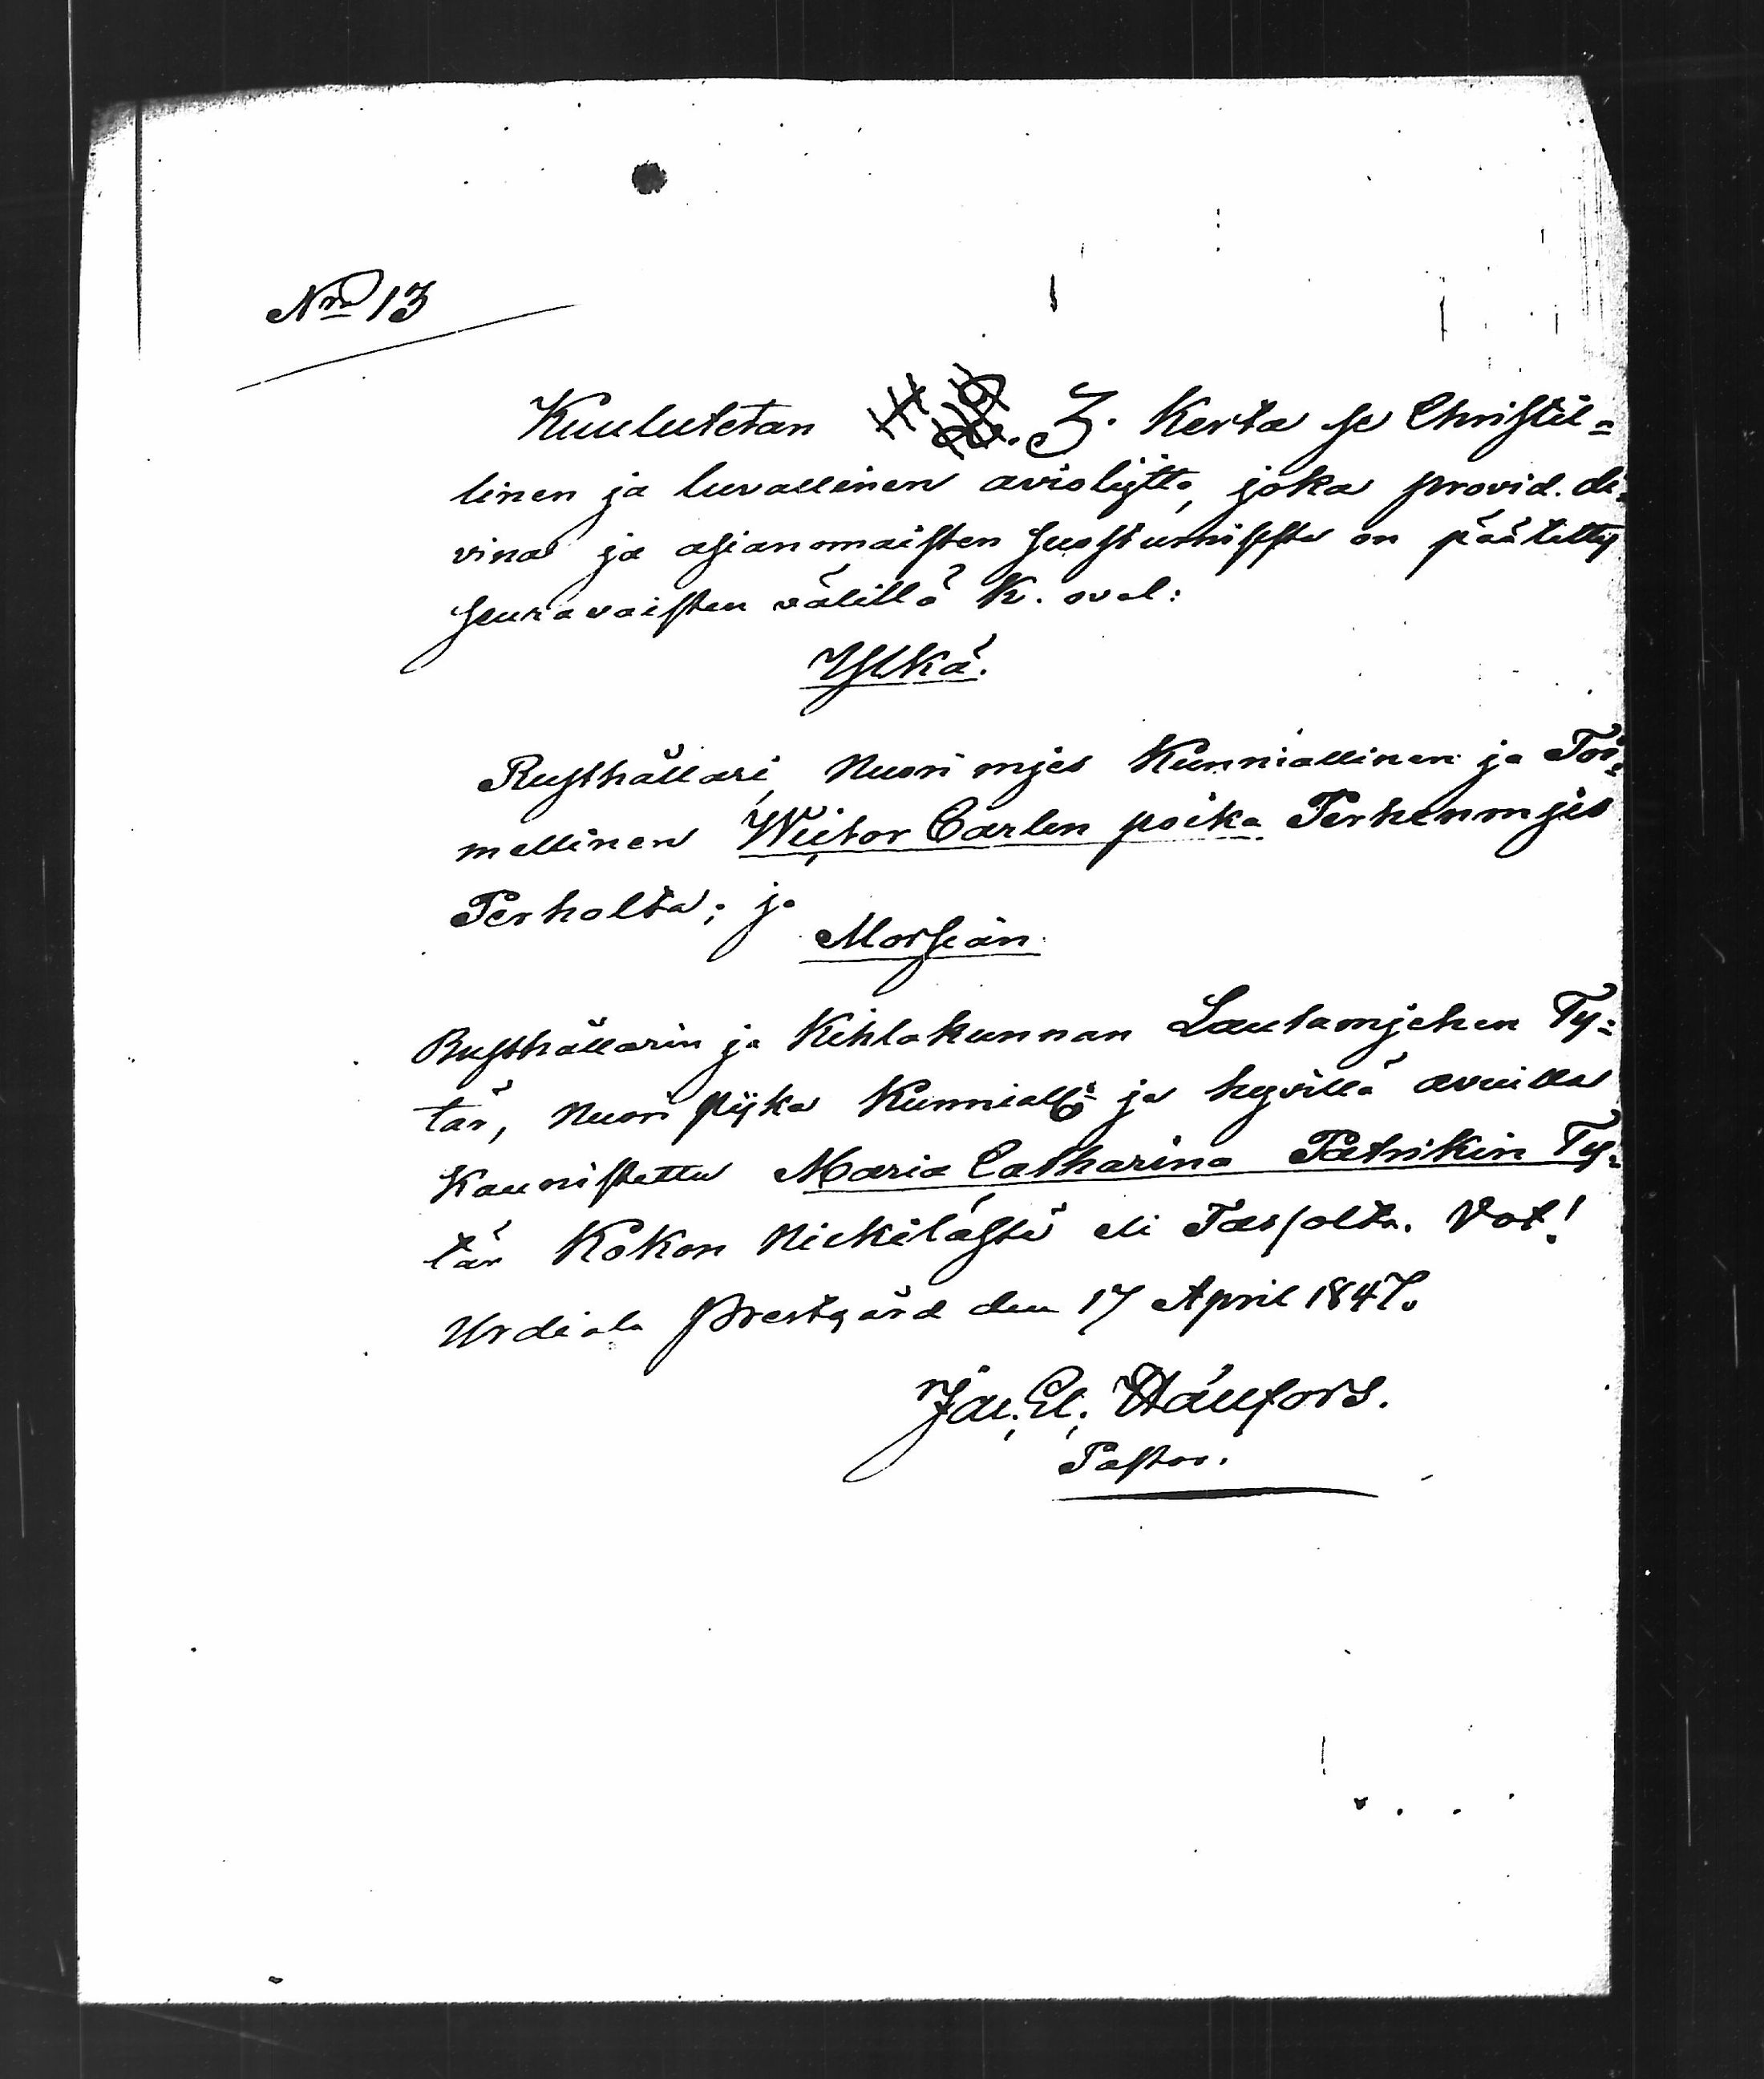 Nro 13
Kuulutetan 3. Kerta se Christil=
linen ja luvallinen avioliјtto, joka provid. di=
vina ja asianomaisten suostumisesta on päätetty
seuravaisten välillä K. oval:
Ylkä.
Rusthållari, Nuori mjes Kunniallinen ja Toi=
mellinen Wictor Carlen poika Perhenmjes
Perholta; ja
Morsian
Rusthållarin ja Kihlakunnan Lautamjehen Ty=
tär, Nuori pijka Kunniall: ja hyvillä avuilla
Kaunistettu Maria Catharina Patrikin Ty=
tär Kokon Nickilästä eli Taipolta. Vot!
Urdiala Prestgård den 17 April 1847.
Pastor.